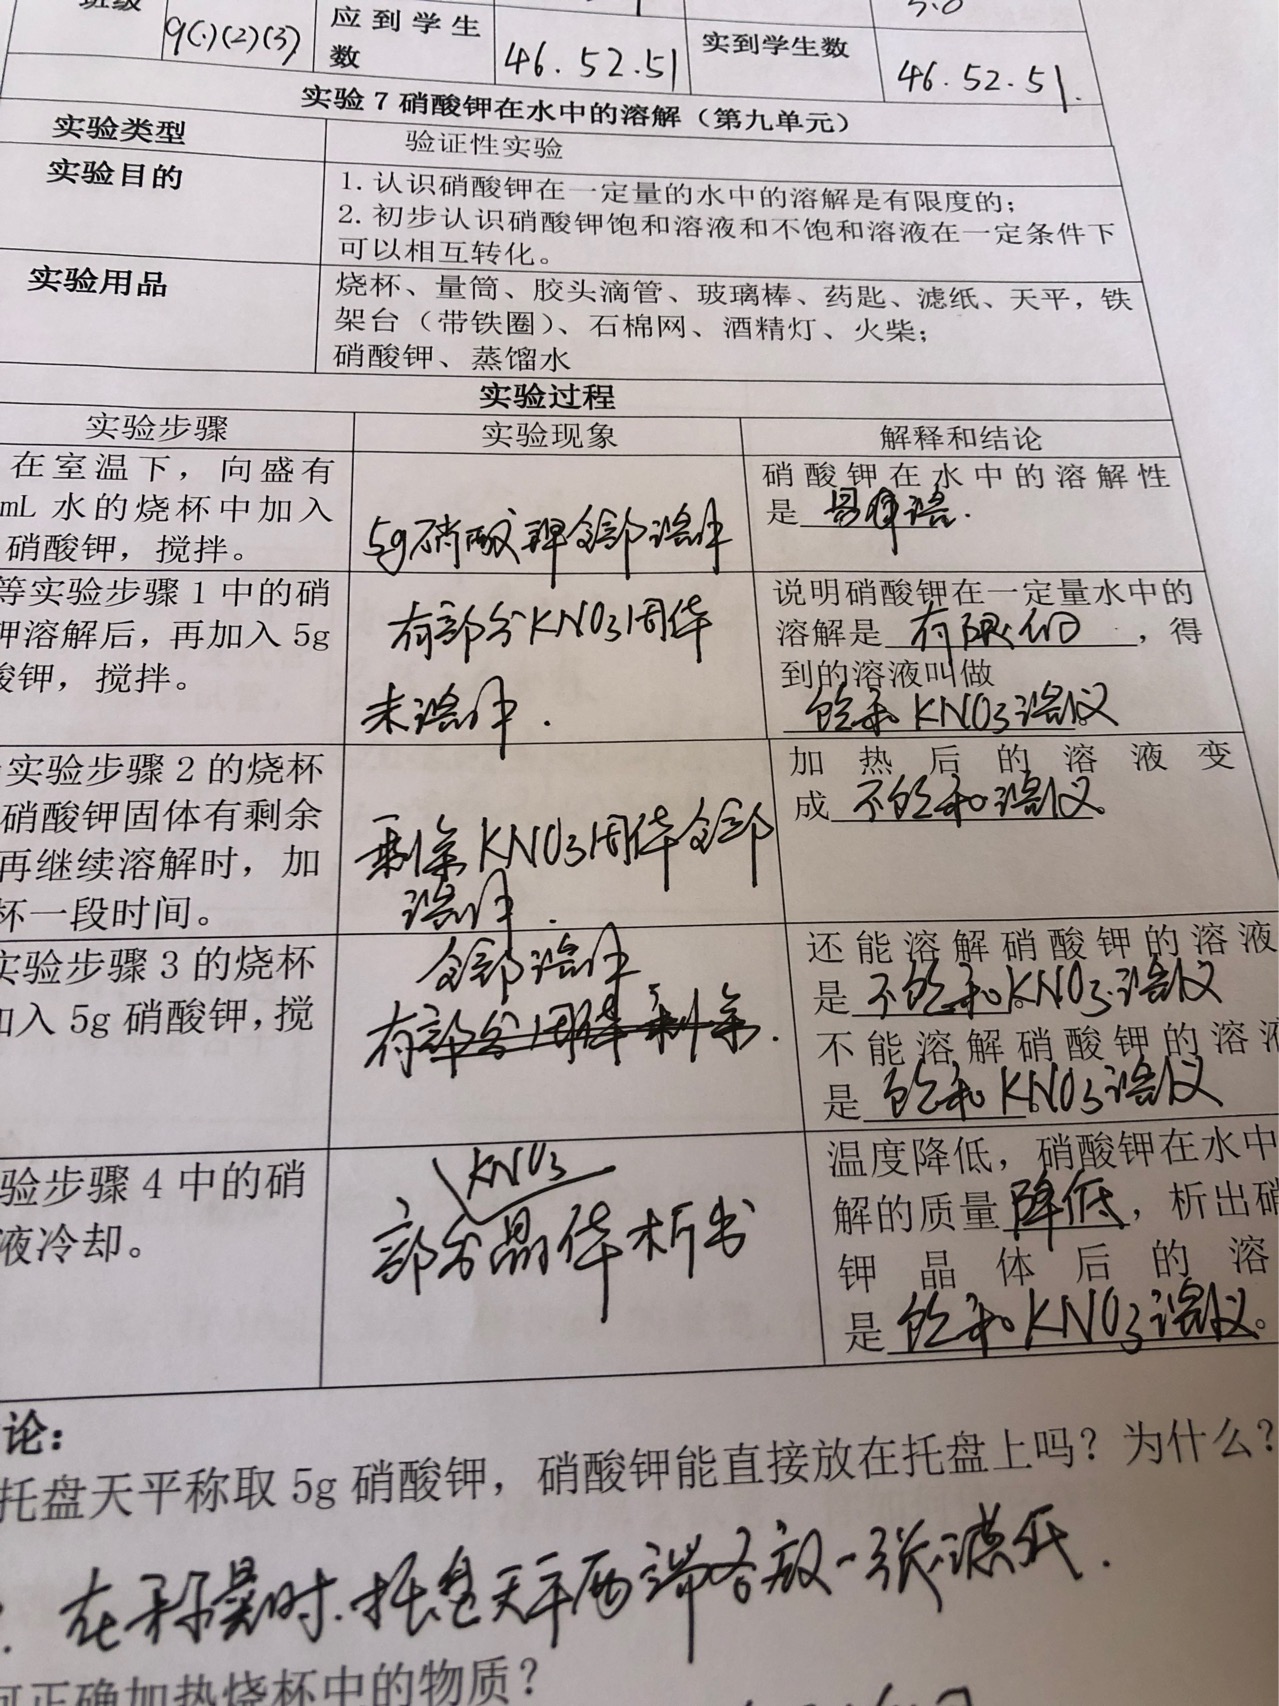 班级 9(1)(2)(3) 应到学生数 46.52.51 实到学生数 46.52.51.
实验 7 硝酸钾在水中的溶解（第九单元）
实验类型 验证性实验
实验目的
1. 认识硝酸钾在一定量的水中的溶解是有限度的；
2. 初步认识硝酸钾饱和溶液和不饱和溶液在一定条件下
可以相互转化。
实验用品
烧杯、量筒、胶头滴管、玻璃棒、药匙、滤纸、天平，铁
架台（带铁圈）、石棉网、酒精灯、火柴；
硝酸钾、蒸馏水
实验过程
实验步骤 实验现象 解释和结论
在室温下，向盛有
mL 水的烧杯中加入
硝酸钾，搅拌。
5g硝酸钾全部溶解
硝酸钾在水中的溶解性
是 易溶.
等实验步骤 1 中的硝
钾溶解后，再加入 5g
酸钾，搅拌。
有部分KNO3固体
未溶解.
说明硝酸钾在一定量水中的
溶解是 有限的，得
到的溶液叫做
饱和 KNO3溶液
实验步骤 2 的烧杯
硝酸钾固体有剩余
再继续溶解时，加
杯一段时间。
剩余KNO3固体全部
溶解.
加热后的溶液变
成 不饱和溶液。
实验步骤 3 的烧杯
加入 5g 硝酸钾，搅
全部溶解
有部分固体剩余.
还能溶解硝酸钾的溶液
是 不饱和KNO3溶液
不能溶解硝酸钾的溶液
是 饱和KNO3溶液
验步骤 4 中的硝
液冷却。
KNO3
部分晶体析出
温度降低，硝酸钾在水中
解的质量降低，析出硝
钾晶体后的溶
是 饱和KNO3溶液。
论：
托盘天平称取 5g 硝酸钾，硝酸钾能直接放在托盘上吗？为什么？
在称量时.托盘天平两端各放一张滤纸.
何正确加热烧杯中的物质？